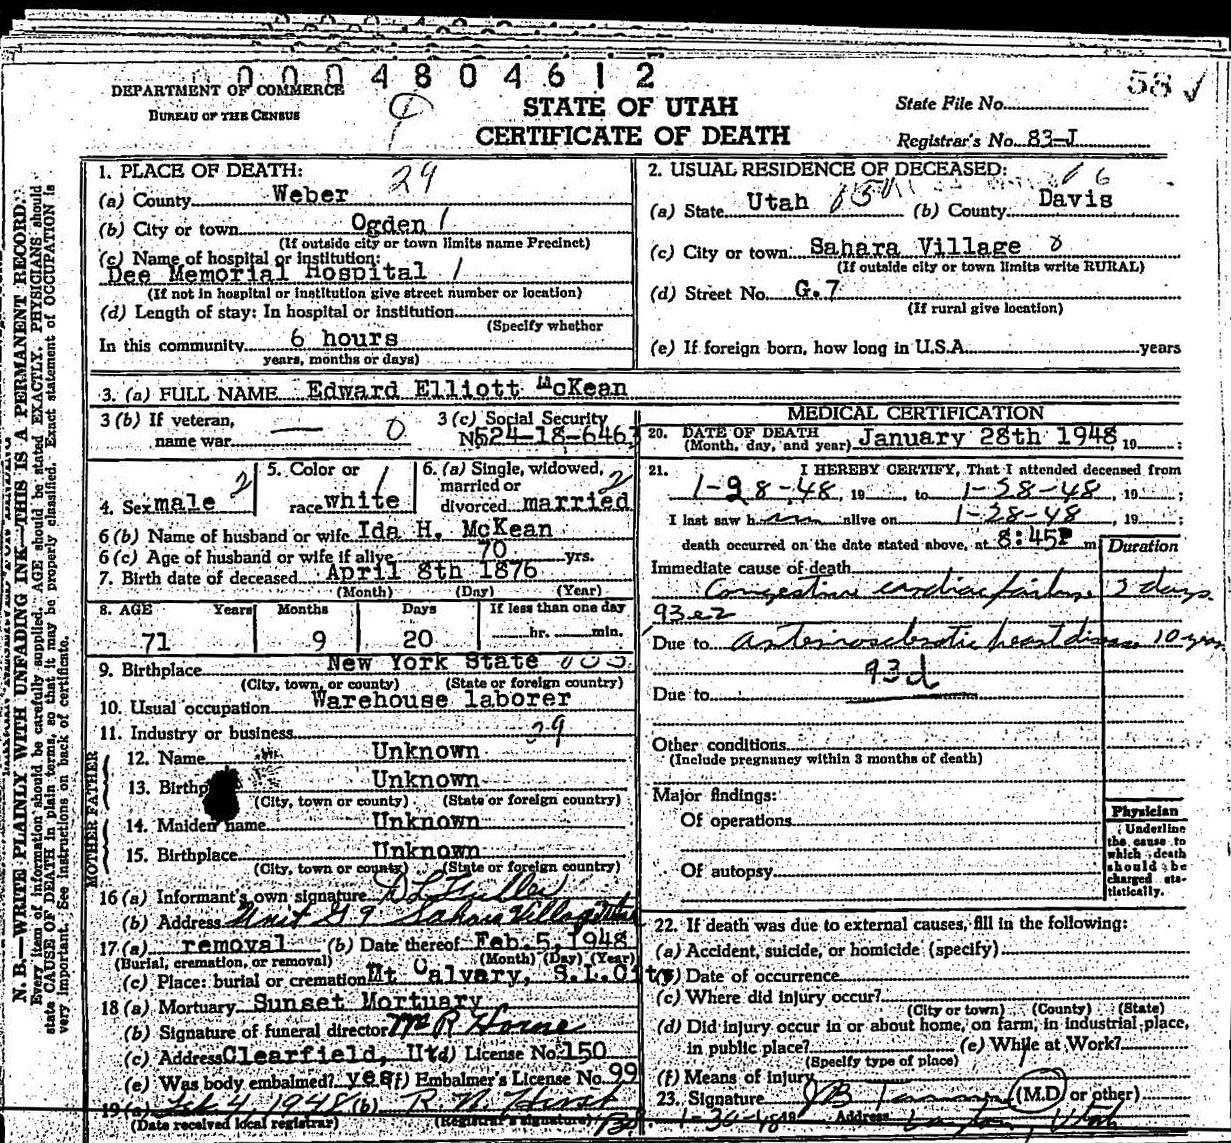 0 0 0 4 8 0 4 6 1 2
58 ✓
DEPARTMENT OF COMMERCE
BUREAU OF THE CENSUS
STATE OF UTAH
CERTIFICATE OF DEATH
State File No.
Registrar's No. 83-J
N. B.—WRITE PLAINLY WITH UNFADING INK—THIS IS A PERMANENT RECORD.
Every item of information should be carefully supplied. AGE should be stated EXACTLY. PHYSICIANS should
state CAUSE OF DEATH in plain terms, so that it may be properly classified. Exact statement of OCCUPATION is
very important. See instructions on back of certificate.
1. PLACE OF DEATH: 29
(a) County Weber
(b) City or town Ogden 1
(If outside city or town limits name Precinct)
(c) Name of hospital or institution:
Dee Memorial Hospital 1
(If not in hospital or institution give street number or location)
(d) Length of stay: In hospital or institution
(Specify whether
In this community 6 hours
years, months or days)
2. USUAL RESIDENCE OF DECEASED: 6
(a) State Utah (b) County Davis
(c) City or town Sahara Village
(If outside city or town limits write RURAL)
(d) Street No. G.7
(If rural give location)
(e) If foreign born, how long in U.S.A. years
3. (a) FULL NAME Edward Elliott McKean
3 (b) If veteran,
name war — 0
3 (c) Social Security
No. 524-18-6463
4. Sex male 2
5. Color or
race white 1
6. (a) Single, widowed,
married or
divorced married 2
6 (b) Name of husband or wife Ida H. McKean
6 (c) Age of husband or wife if alive 70 yrs.
7. Birth date of deceased April 8th 1876
(Month) (Day) (Year)
8. AGE Years Months Days If less than one day
71 9 20 hr. min.
9. Birthplace New York State
(City, town, or county) (State or foreign country)
10. Usual occupation Warehouse laborer
11. Industry or business 39
FATHER
12. Name Unknown
13. Birthp Unknown
(City, town or county) (State or foreign country)
MOTHER
14. Maiden name Unknown
15. Birthplace Unknown
(City, town or county) (State or foreign country)
16 (a) Informant's own signature D L Fuller
(b) Address Unit G 9 Sahara Village Utah
17 (a) removal (b) Date thereof Feb. 5, 1948
(Burial, cremation, or removal) (Month) (Day) (Year)
(c) Place: burial or cremation Mt Calvary, S.L.City
18 (a) Mortuary Sunset Mortuary
(b) Signature of funeral director Horne
(c) Address Clearfield, Ut (d) License No. 150
(e) Was body embalmed? yes (f) Embalmer's License No. 99
19 (a) Feb. 4, 1948 (b) R. N. Hirst
(Date received local registrar) (Registrar's signature)
MEDICAL CERTIFICATION
20. DATE OF DEATH
(Month, day, and year) January 28th 1948, 19 ;
21. I HEREBY CERTIFY, That I attended deceased from
1-28-48, 19 , to 1-28-48, 19 ;
I last saw him alive on 1-28-48, 19 ;
death occurred on the date stated above, at 8:45P m
Duration
Immediate cause of death
Congestive cardiac failure 2 days.
93e2
Due to arteriosclerotic heart disease 10 years
93d
Due to
Other conditions
(Include pregnancy within 3 months of death)
Major findings:
Of operations
Of autopsy
Physician
Underline
the cause to
which death
should be
charged sta-
tistically.
22. If death was due to external causes, fill in the following:
(a) Accident, suicide, or homicide (specify)
(b) Date of occurrence
(c) Where did injury occur?
(City or town) (County) (State)
(d) Did injury occur in or about home, on farm, in industrial place,
in public place? (e) While at Work?
(Specify type of place)
(f) Means of injury
23. Signature (M.D or other)
1-30-48 Address Layton, Utah